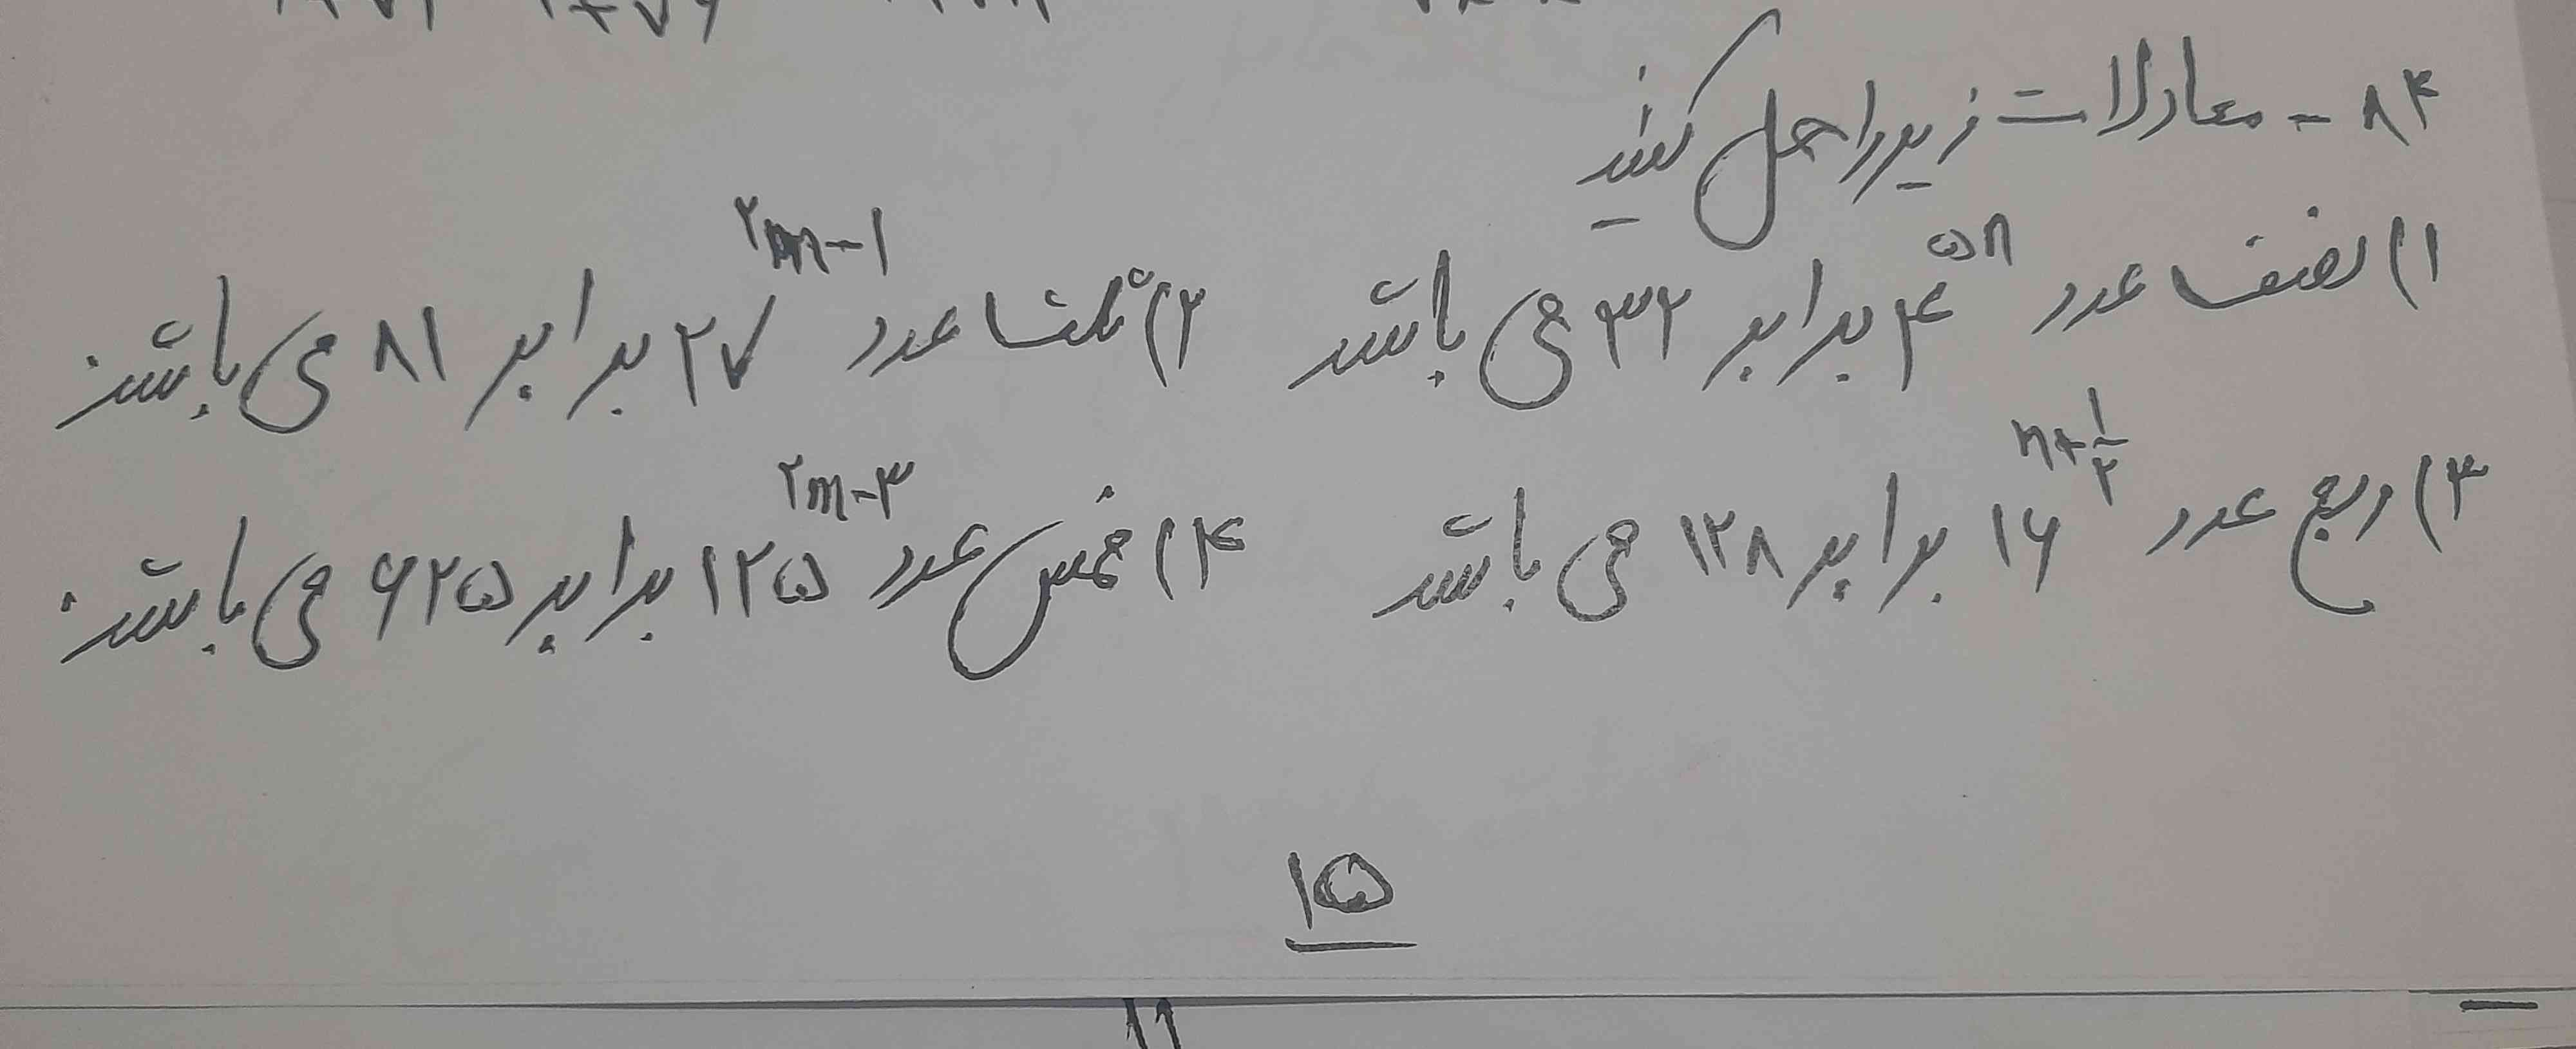 ۸۴ - معادلات زیر را حل کنید
۱) نصف عدد ۴^{۵n} برابر ۳۲ می باشد ۲) ثلث عدد ۲۷^{۲m-۱} برابر ۸۱ می باشد.
۳) ربع عدد ۱۶^{n+\frac{۱}{۲}} برابر ۱۲۸ می باشد ۴) خمس عدد ۱۲۵^{۲m-۳} برابر ۶۲۵ می باشد.
۱۵